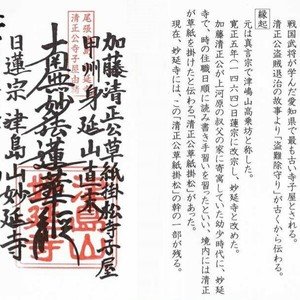 縁起
戦国武将が学んだ、愛知県内で最も古い寺子屋とされる。
清正公盗賊退治の故事より「盗難除守り」が古くから伝わる。
元は真言宗で津嶋山高乗坊と称した。
寛正五年(一四六四)日蓮宗に改宗し、妙延寺と改めた。
加藤清正公が上河原の叔父の家に寄寓していた幼少時代に、妙延
寺で、時の住職日順に読み書き手習いを習ったといい、境内には清正
公が草紙を掛けたと伝わる「清正公草紙掛松」があった。
現在、妙延寺には、この「清正公草紙掛松」の幹の一部が残る。
加藤清正公草紙掛松寺子屋
尾張
清正公寺子屋
甲州身延山直末
南無妙法蓮華経
津島山
妙延寺
日蓮宗津島山妙延寺